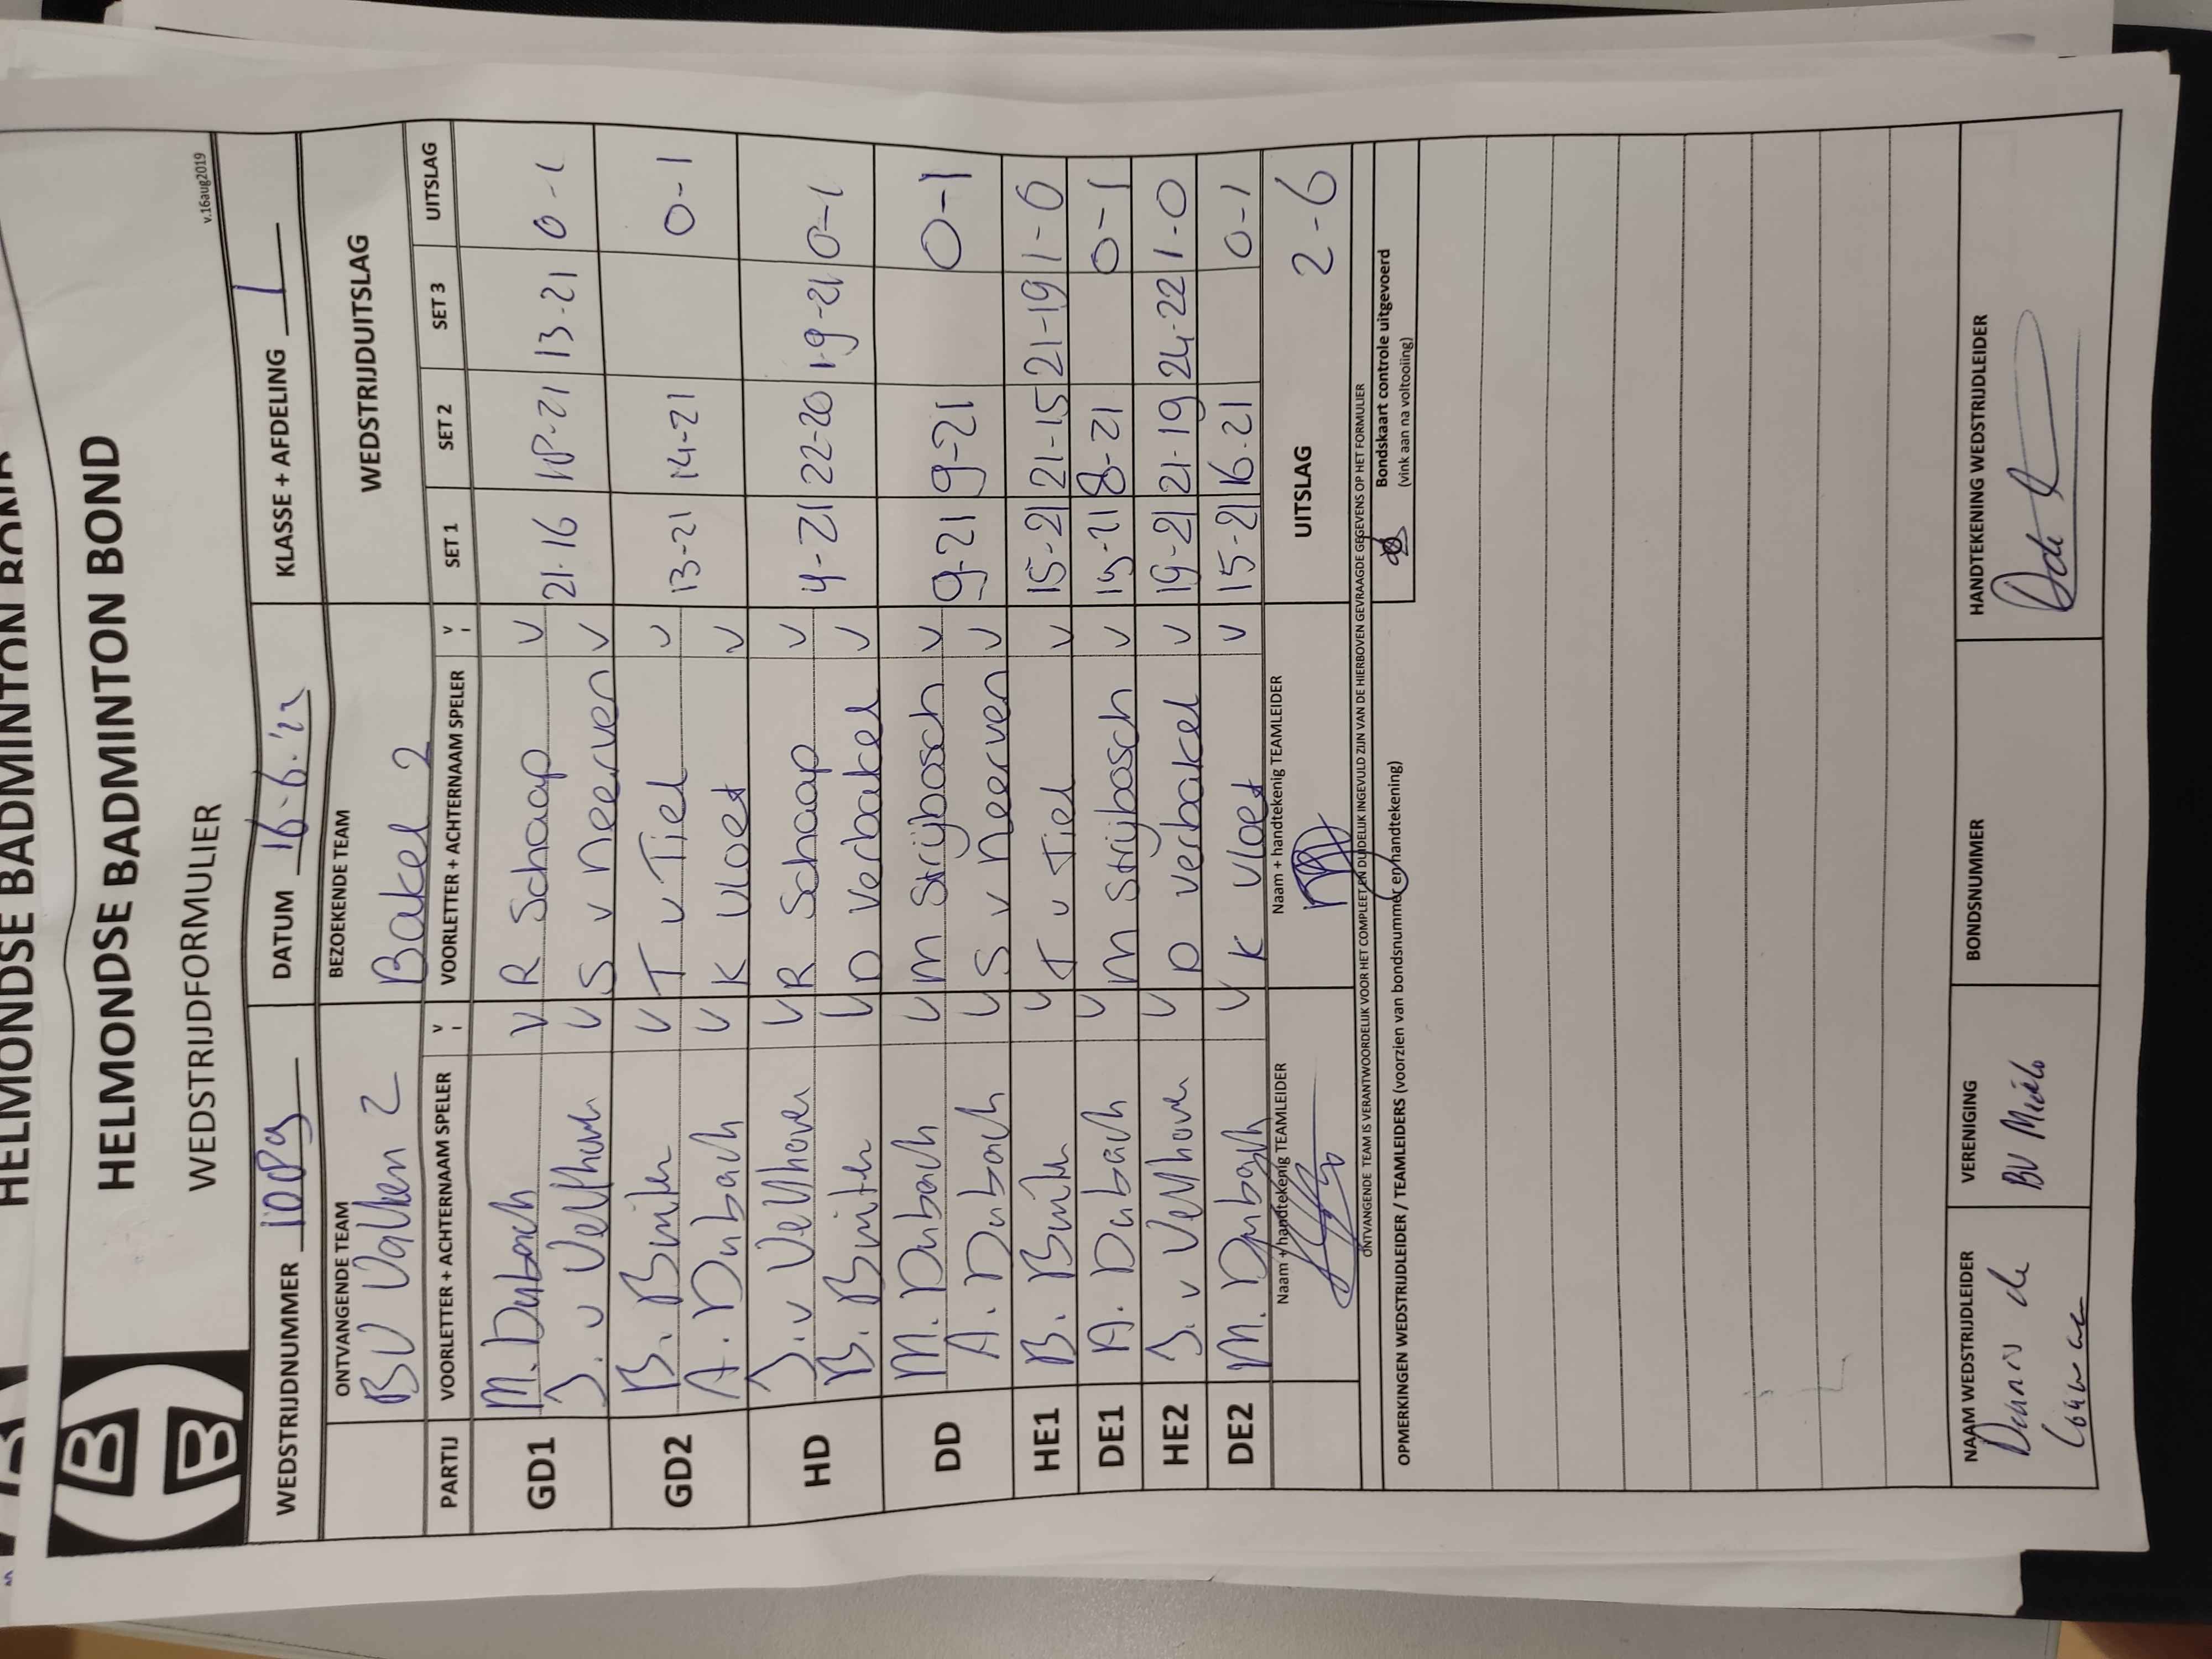 HELMONDSE BADMINTON BOND
HELMONDSE BADMINTON BOND
WEDSTRIJDFORMULIER
v.16aug2019
WEDSTRIJDNUMMER DATUM 16-6-'22 KLASSE + AFDELING 1
ONTVANGENDE TEAM BEZOEKENDE TEAM WEDSTRIJDUITSLAG
BV Valken 2 Bakel 2
PARTIJ VOORLETTER + ACHTERNAAM SPELER V VOORLETTER + ACHTERNAAM SPELER V SET 1 SET 2 SET 3 UITSLAG
GD1 M. Dubach V R Schaap V 21-16 18-21 13-21 0-1
J. v Velthoven V S v Neerven V
GD2 B. V T v Tiel V 13-21 14-21 0-1
A. Dubach V K Vloet V
HD J. v Velthoven V R Schaap V 4-21 22-20 19-21 0-1
B. V D Verbakel V
DD M. Dubach V M Strijbosch V 9-21 9-21 0-1
A. Dubach V S v Neerven V
HE1 B. V T v Tiel V 15-21 21-15 21-19 1-0
DE1 A. Dubach V M Strijbosch V 15-21 8-21 0-1
HE2 J. v Velthoven V D Verbakel V 19-21 21-19 24-22 1-0
DE2 M. Dubach V K Vloet V 15-21 16-21 0-1
Naam + handtekenig TEAMLEIDER Naam + handtekenig TEAMLEIDER UITSLAG 2-6
ONTVANGENDE TEAM IS VERANTWOORDELIJK VOOR HET COMPLEET EN DUIDELIJK INGEVULD ZIJN VAN DE HIERBOVEN GEVRAAGDE GEGEVENS OP HET FORMULIER
Bondskaart controle uitgevoerd
(vink aan na voltooiing)
OPMERKINGEN WEDSTRIJDLEIDER / TEAMLEIDERS (voorzien van bondsnummer en handtekening)
NAAM WEDSTRIJDLEIDER VERENIGING BONDSNUMMER HANDTEKENING WEDSTRIJDLEIDER
Dennis de BV Mierlo